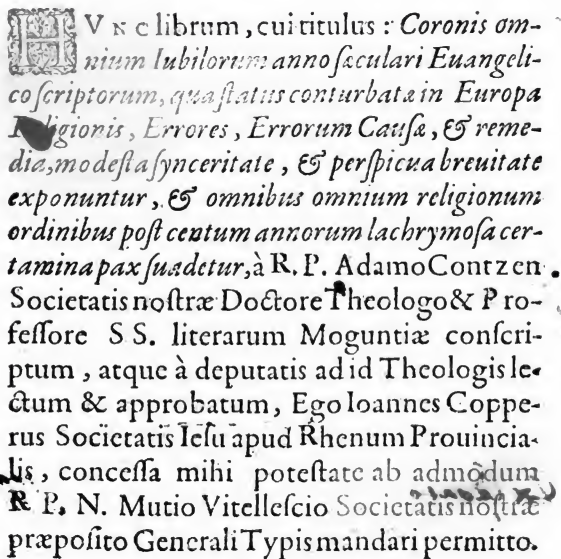 HVNC librum, cui titulus : Coronis om-
nium Iubilorum anno ſæculari Euangeli-
co ſcriptorum, qua ſtatus conturbatæ in Europa
Religionis, Errores, Errorum Cauſæ, & reme-
dia, modeſta ſynceritate, & perſpicua breuitate
exponuntur, & omnibus omnium religionum
ordinibus poſt centum annorum lachrymoſa cer-
tamina pax ſuadetur, à R. P. Adamo Contzen
Societatis noſtræ Doctore Theologo & Pro-
feſſore SS. literarum Moguntiæ conſcri-
ptum, atque à deputatis ad id Theologis le-
ctum & approbatum, Ego Ioannes Coppe-
rus Societatis Ieſu apud Rhenum Prouincia-
lis, conceſſa mihi poteſtate ab admòdum
R. P. N. Mutio Vitelleſcio Societatis noſtræ
præpoſito Generali Typis mandari permitto.